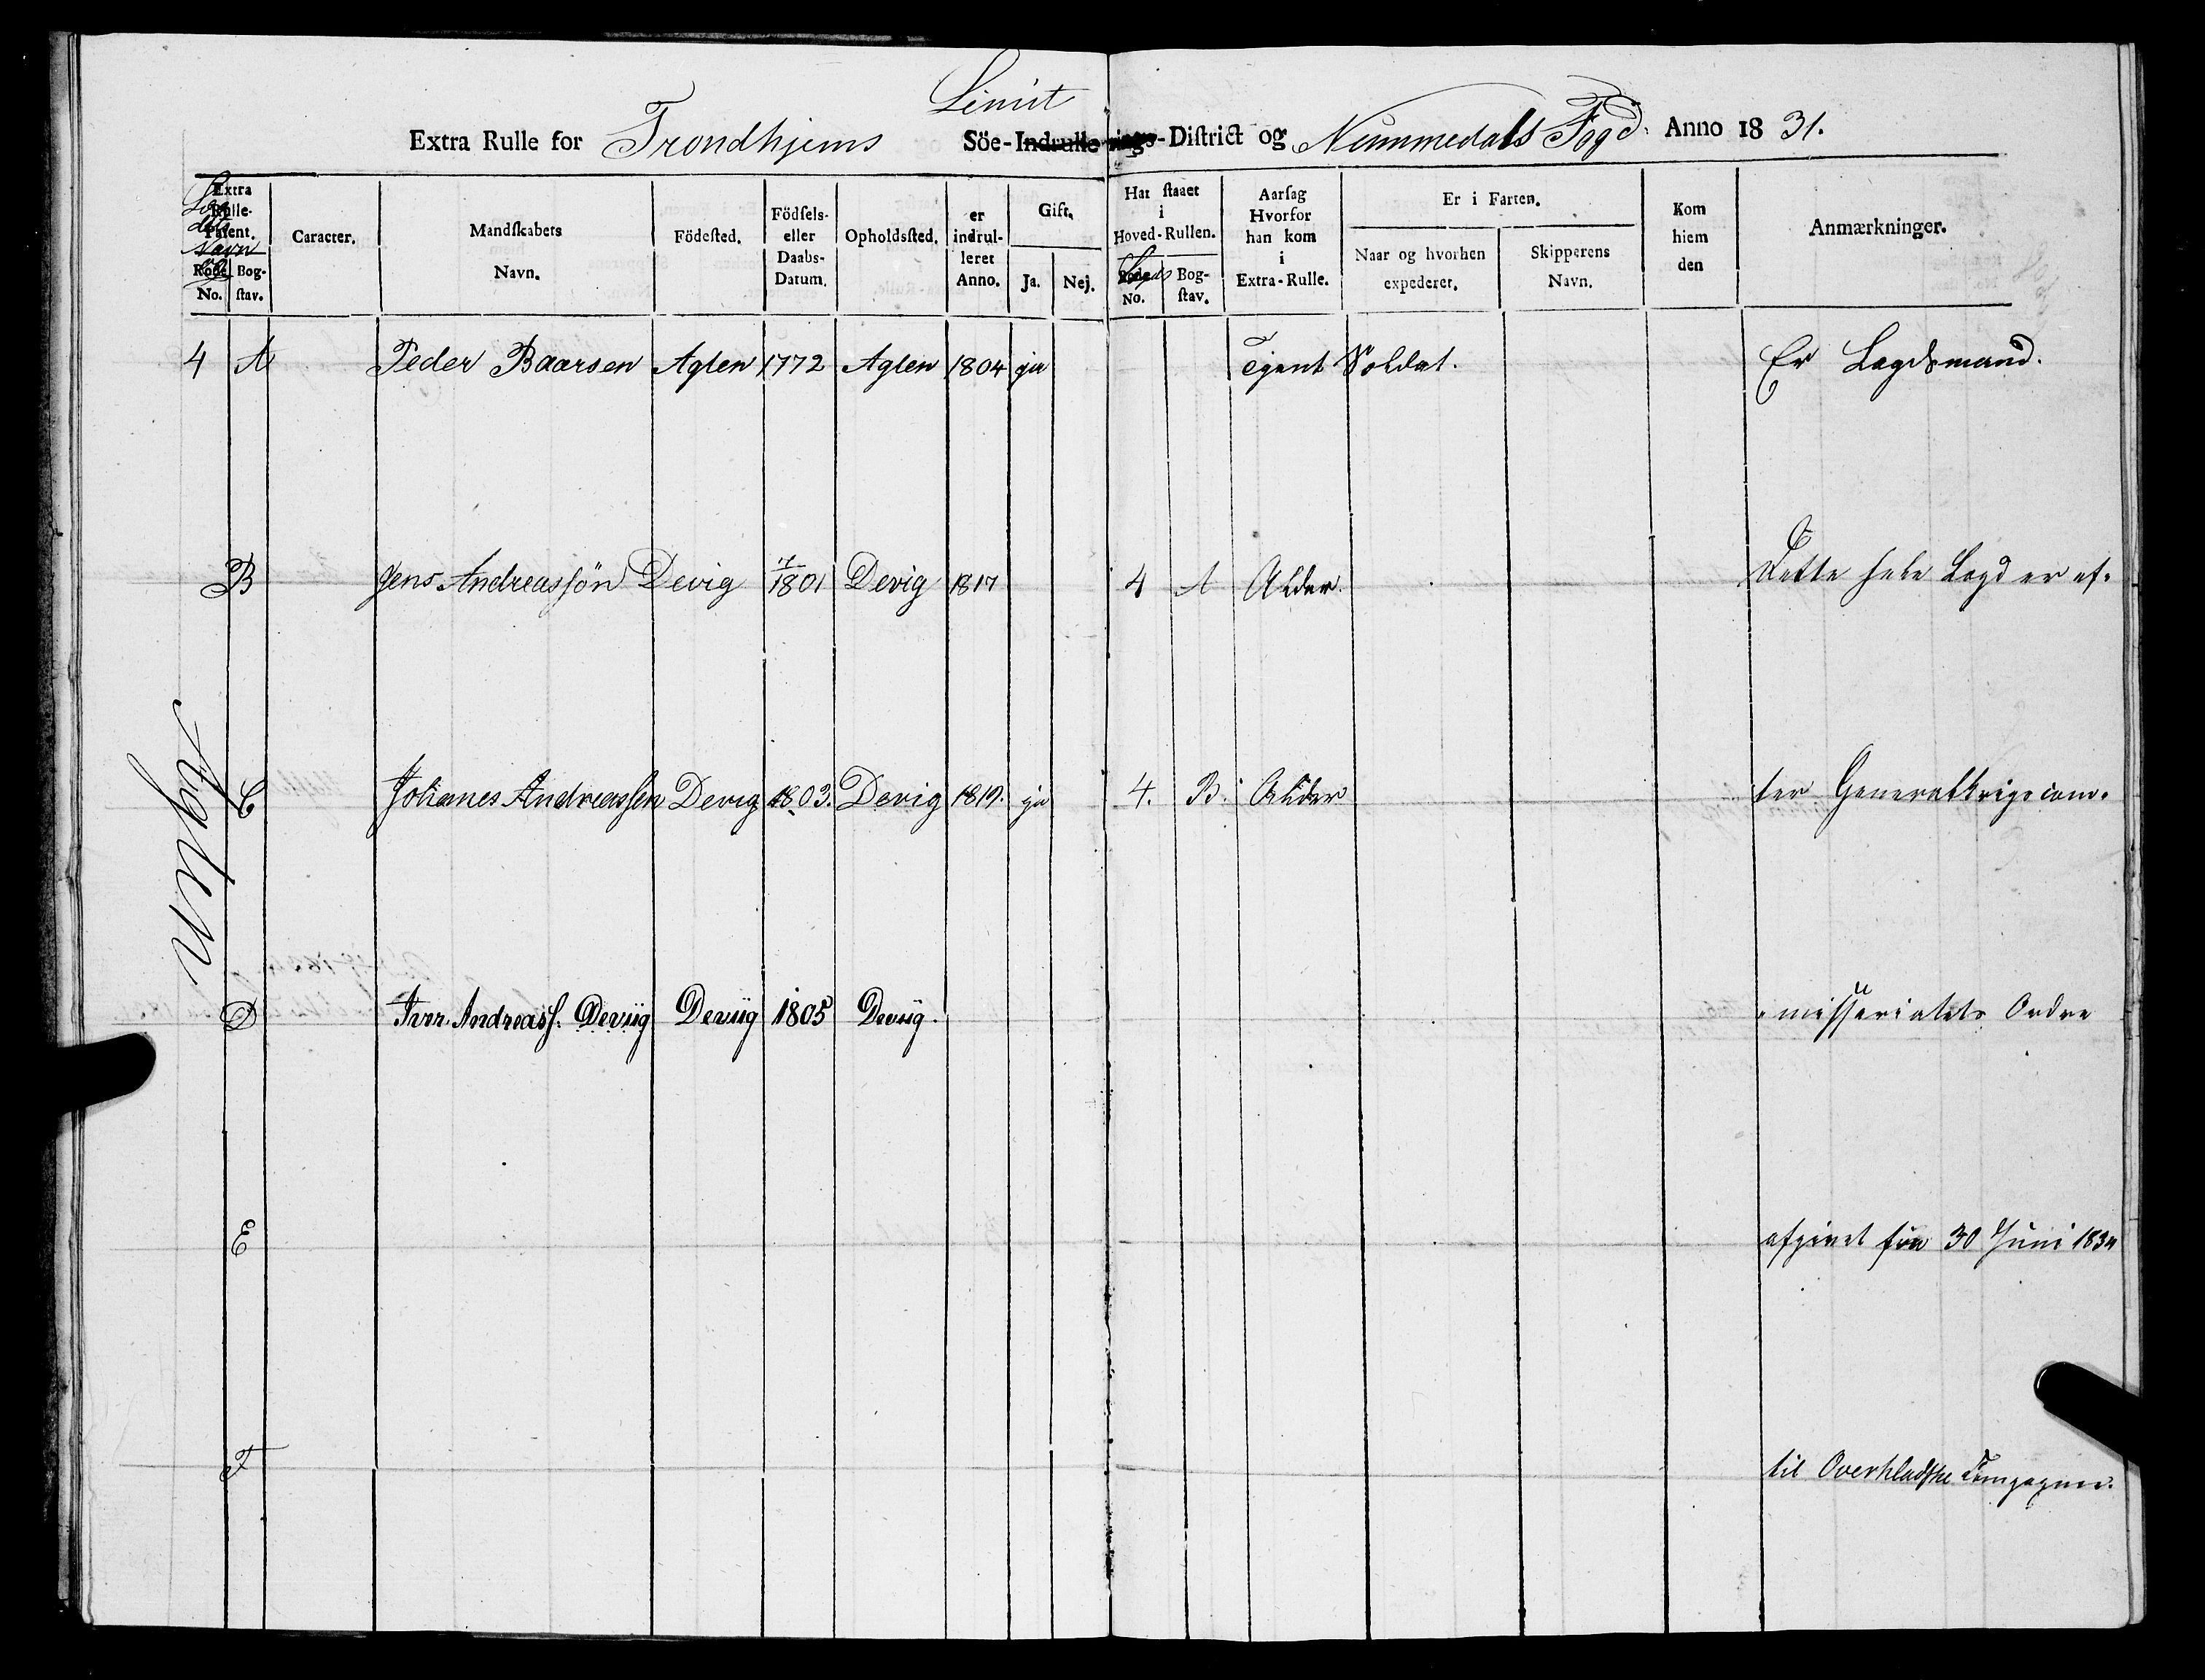 Limit
Extra Rulle for Trondhjems Söe-Indrullerings-District og Nummedals Fogd: Anno 1831.
Extra Rulle-Patent.
Lægdets Navn og
Rode No.
Bog-stav.
Caracter.
Mandskabets Navn.
Födested.
Födsels- eller Daabs-Datum.
Opholdssted.
er indrul-leret Anno.
Gift.
Ja. Nej.
Har staaet i Hoved-Rullen.
Lægds
No. Bog-stav.
Aarsag Hvorfor han kom i Extra-Rulle.
Er i Farten.
Naar og hvorhen expederet.
Skipperens Navn.
Kom hiem den
Anmærkninger.
4 A Peder Baarsen Aglen 1772 Aglen 1804 ja Tjent Soldat. Er Lægdsmand.
B Jens Andreassön Devig 1801 Devig 1817 4 A Alder. Dette hele Lægd er ef-
Aglen
C Johanes Andreassen Devig 1803. Devig 1819. ja 4. B. Alder ter Generalkrigscom-
D Iver Andreass. Deviig Deviig 1805 Deviig. -missariatets Ordre
E afgivet fra 30 Juni 1834
F til Overhladske Compagnie.